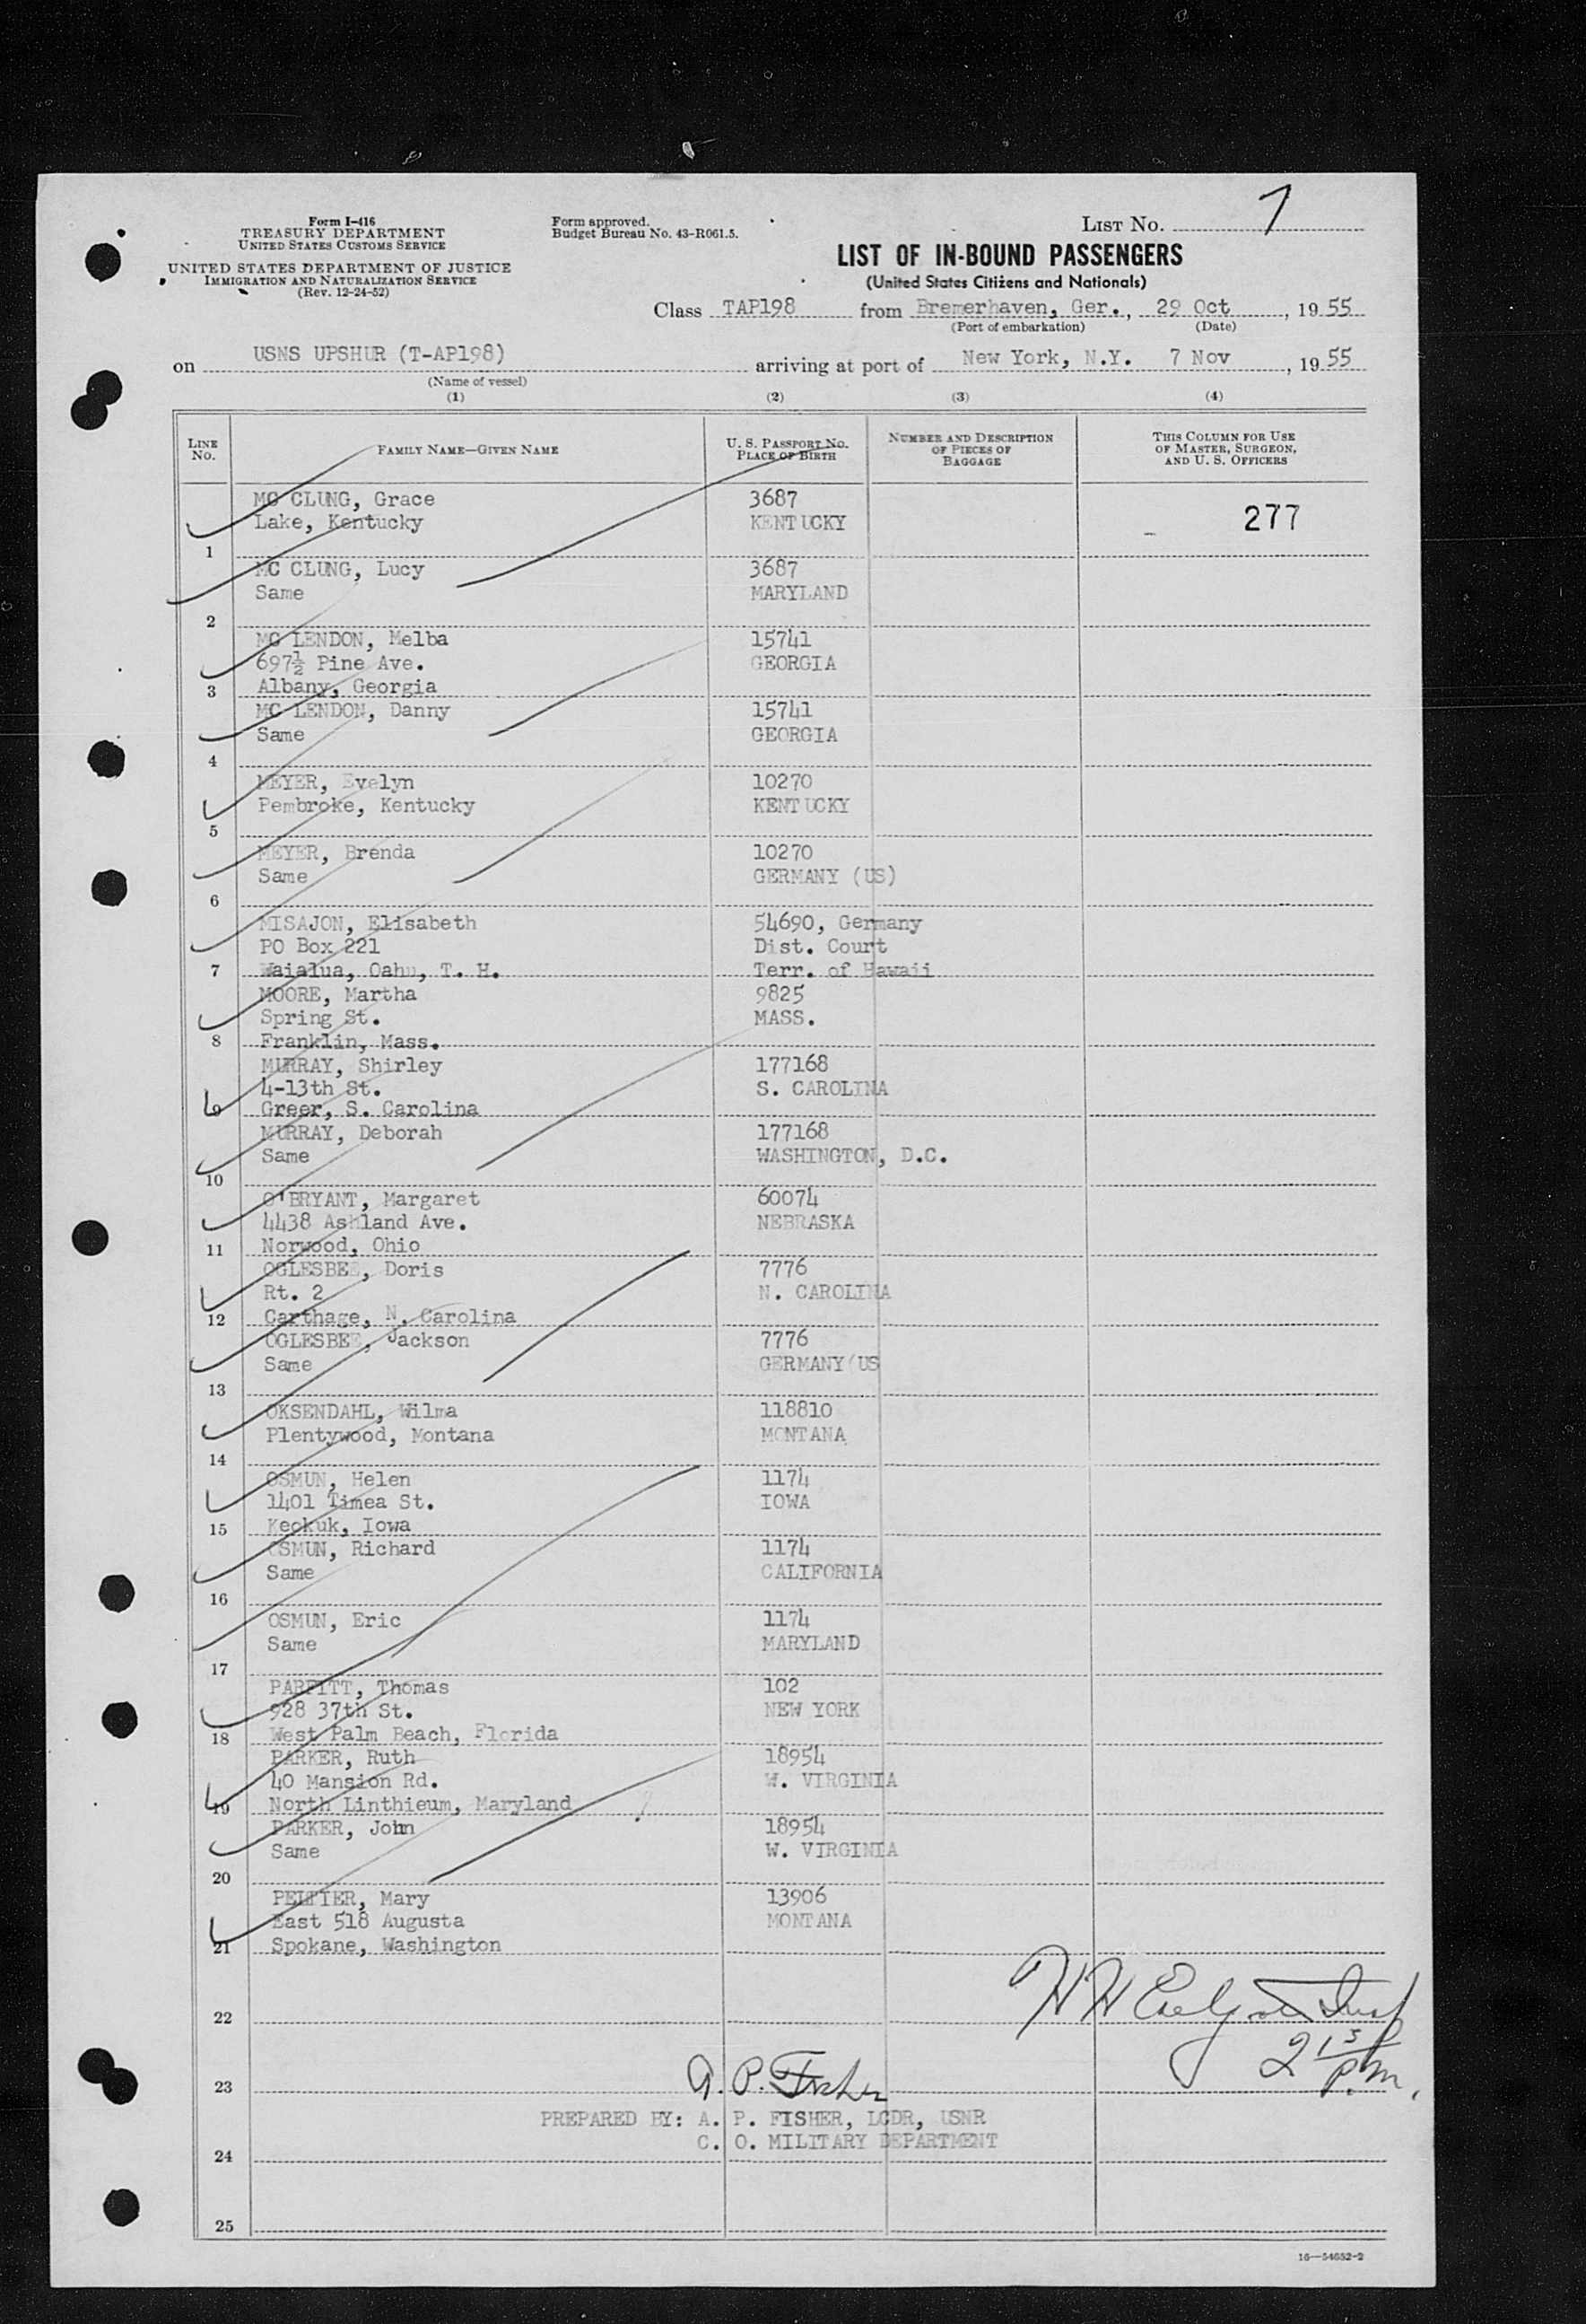 Form I-416
TREASURY DEPARTMENT
UNITED STATES CUSTOMS SERVICE
UNITED STATES DEPARTMENT OF JUSTICE
IMMIGRATION AND NATURALIZATION SERVICE
(Rev. 12-24-52)
Form approved.
Budget Bureau No. 43-R061.5.
LIST NO. 7
LIST OF IN-BOUND PASSENGERS
(United States Citizens and Nationals)
Class TAP198 from Bremerhaven, Ger., 29 Oct, 1955
(Port of embarkation) (Date)
on USNS UPSHUR (T-AP198) arriving at port of New York, N.Y. 7 Nov, 1955
(Name of vessel)
(1) (2) (3) (4)
LINE NO. FAMILY NAME—GIVEN NAME U. S. PASSPORT NO. PLACE OF BIRTH NUMBER AND DESCRIPTION OF PIECES OF BAGGAGE THIS COLUMN FOR USE OF MASTER, SURGEON, AND U. S. OFFICERS
MC CLUNG, Grace 3687
Lake, Kentucky KENTUCKY 277
1
MC CLUNG, Lucy 3687
Same MARYLAND
2
MC LENDON, Melba 15741
697½ Pine Ave. GEORGIA
3 Albany, Georgia
MC LENDON, Danny 15741
Same GEORGIA
4
MEYER, Evelyn 10270
Pembroke, Kentucky KENTUCKY
5
MEYER, Brenda 10270
Same GERMANY (US)
6
MISAJON, Elisabeth 54690, Germany
PO Box 221 Dist. Court
7 Waialua, Oahu, T. H. Terr. of Hawaii
MOORE, Martha 9825
Spring St. MASS.
8 Franklin, Mass.
MURRAY, Shirley 177168
4-13th St. S. CAROLINA
9 Greer, S. Carolina
MURRAY, Deborah 177168
Same WASHINGTON, D.C.
10
O'BRYANT, Margaret 60074
4438 Ashland Ave. NEBRASKA
11 Norwood, Ohio
OGLESBEE, Doris 7776
Rt. 2 N. CAROLINA
12 Carthage, N. Carolina
OGLESBEE, Jackson 7776
Same GERMANY(US
13
OKSENDAHL, Wilma 118810
Plentywood, Montana MONTANA
14
OSMUN, Helen 1174
1401 Timea St. IOWA
15 Keokuk, Iowa
OSMUN, Richard 1174
Same CALIFORNIA
16
OSMUN, Eric 1174
Same MARYLAND
17
PARFITT, Thomas 102
928 37th St. NEW YORK
18 West Palm Beach, Florida
PARKER, Ruth 18954
40 Mansion Rd. W. VIRGINIA
19 North Linthieum, Maryland
PARKER, John 18954
Same W. VIRGINIA
20
PELTIER, Mary 13906
East 518 Augusta MONTANA
21 Spokane, Washington
22
H H
2 15 P.M.
A. P. Fisher
23
PREPARED BY: A. P. FISHER, LCDR, USNR
C. O. MILITARY DEPARTMENT
24
25
16—54652-2